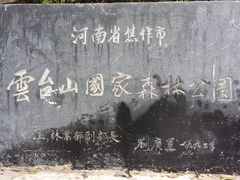 河南省焦作市
雲台山國家森林公園
林業部副部長
劉廣運一九九三年